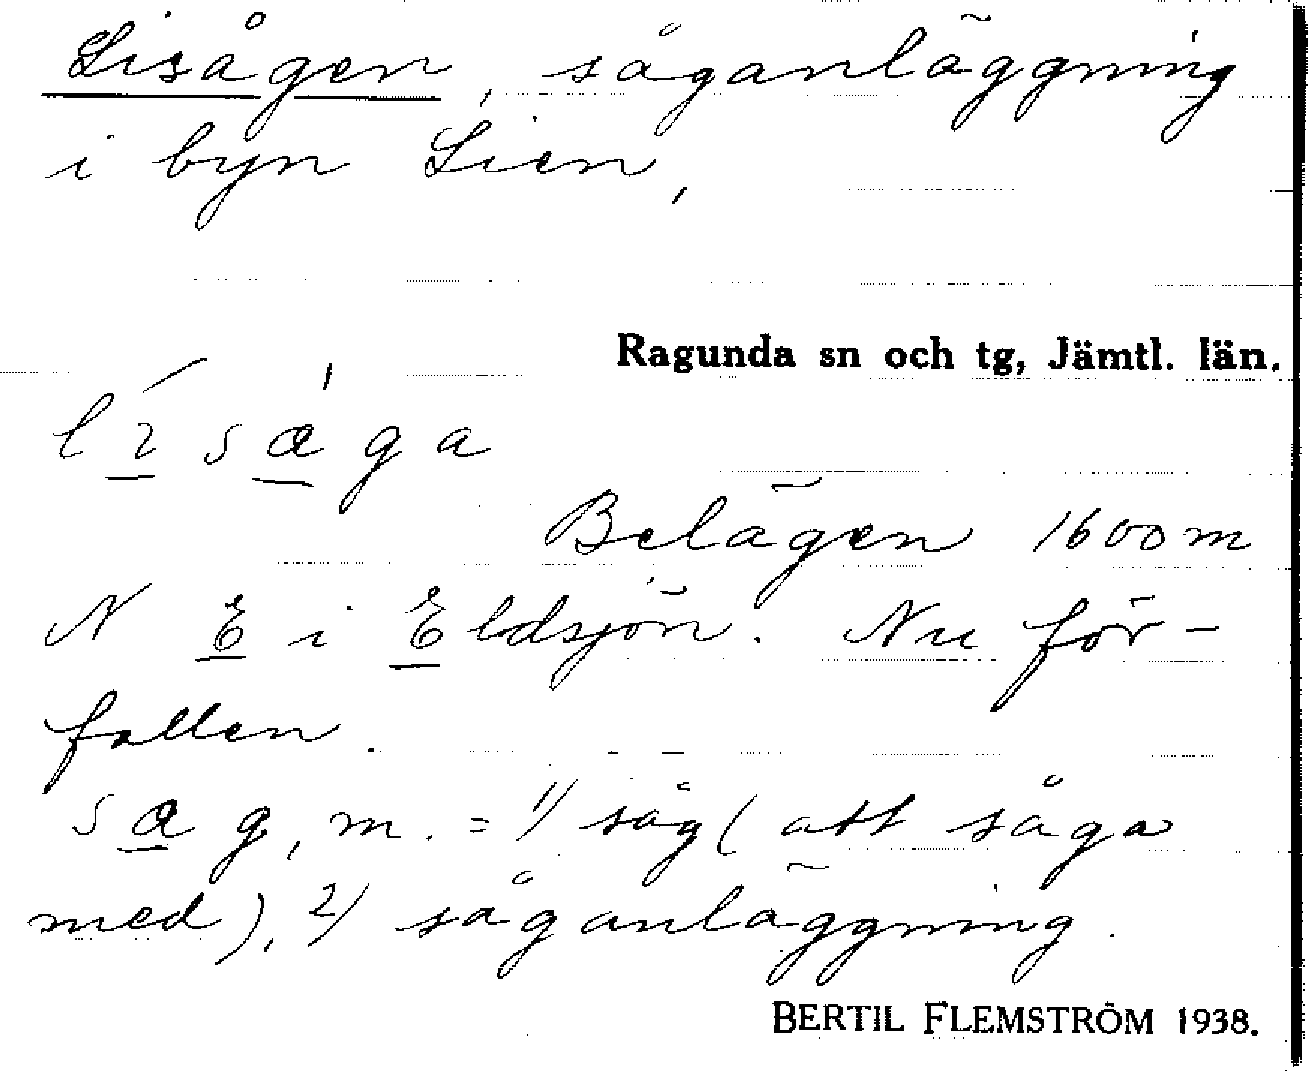 Lisågen, såganläggning
i byn Lien,
Ragunda sn och tg, Jämtl. län.
lísæ̀ga
Belägen 1600 m
N E i Eldsjön. Nu för-
fallen.
sæg, m. = 1/ såg (att såga
med), 2/ såganläggning.
BERTIL FLEMSTRÖM 1938.